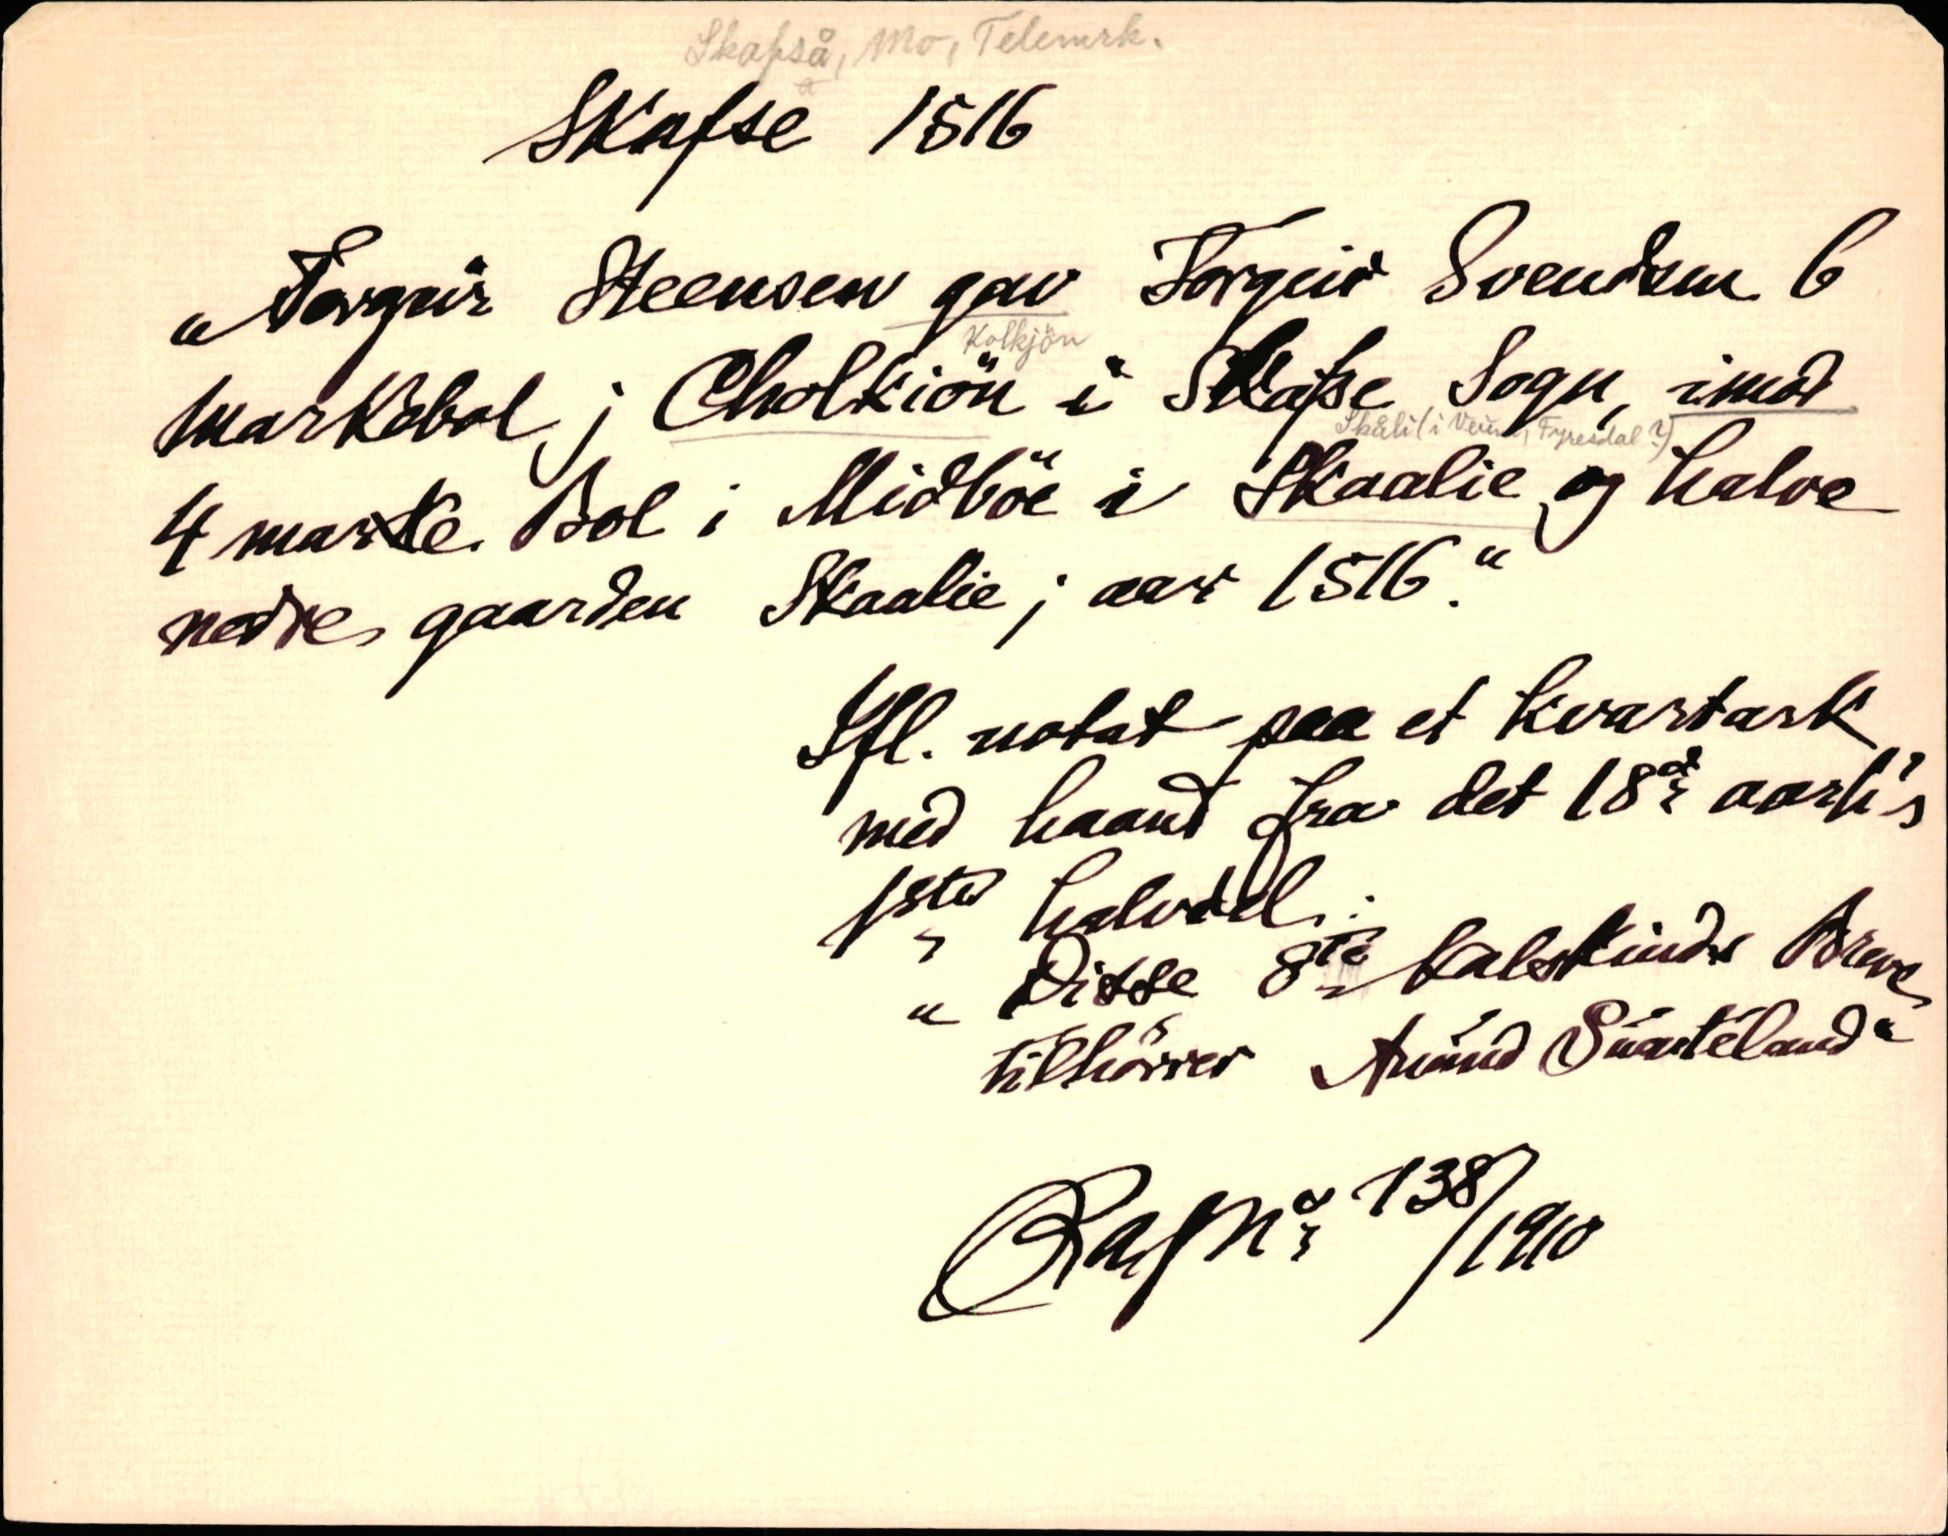 Skafså, Mo, Telemrk.
Skafse 1516
"Torgeir Steensen gav Torgeir Svendsen 6
Kolkjön
markebol j Cholkiön i Skafse Sogn, imod
Skåli (i Veum, Fyresdal?)
4 marke Bol i Midböe i Skaalie og halve
nedre gaarden Skaalie j aar 1516."
Ifl. notat paa et kvartark
med haand fra det 18de aarh's
1ste halvdel:
"Disse 8te kalskinds Breve
tilhörrer Anund Suarteland"
RaJNo 138/1910